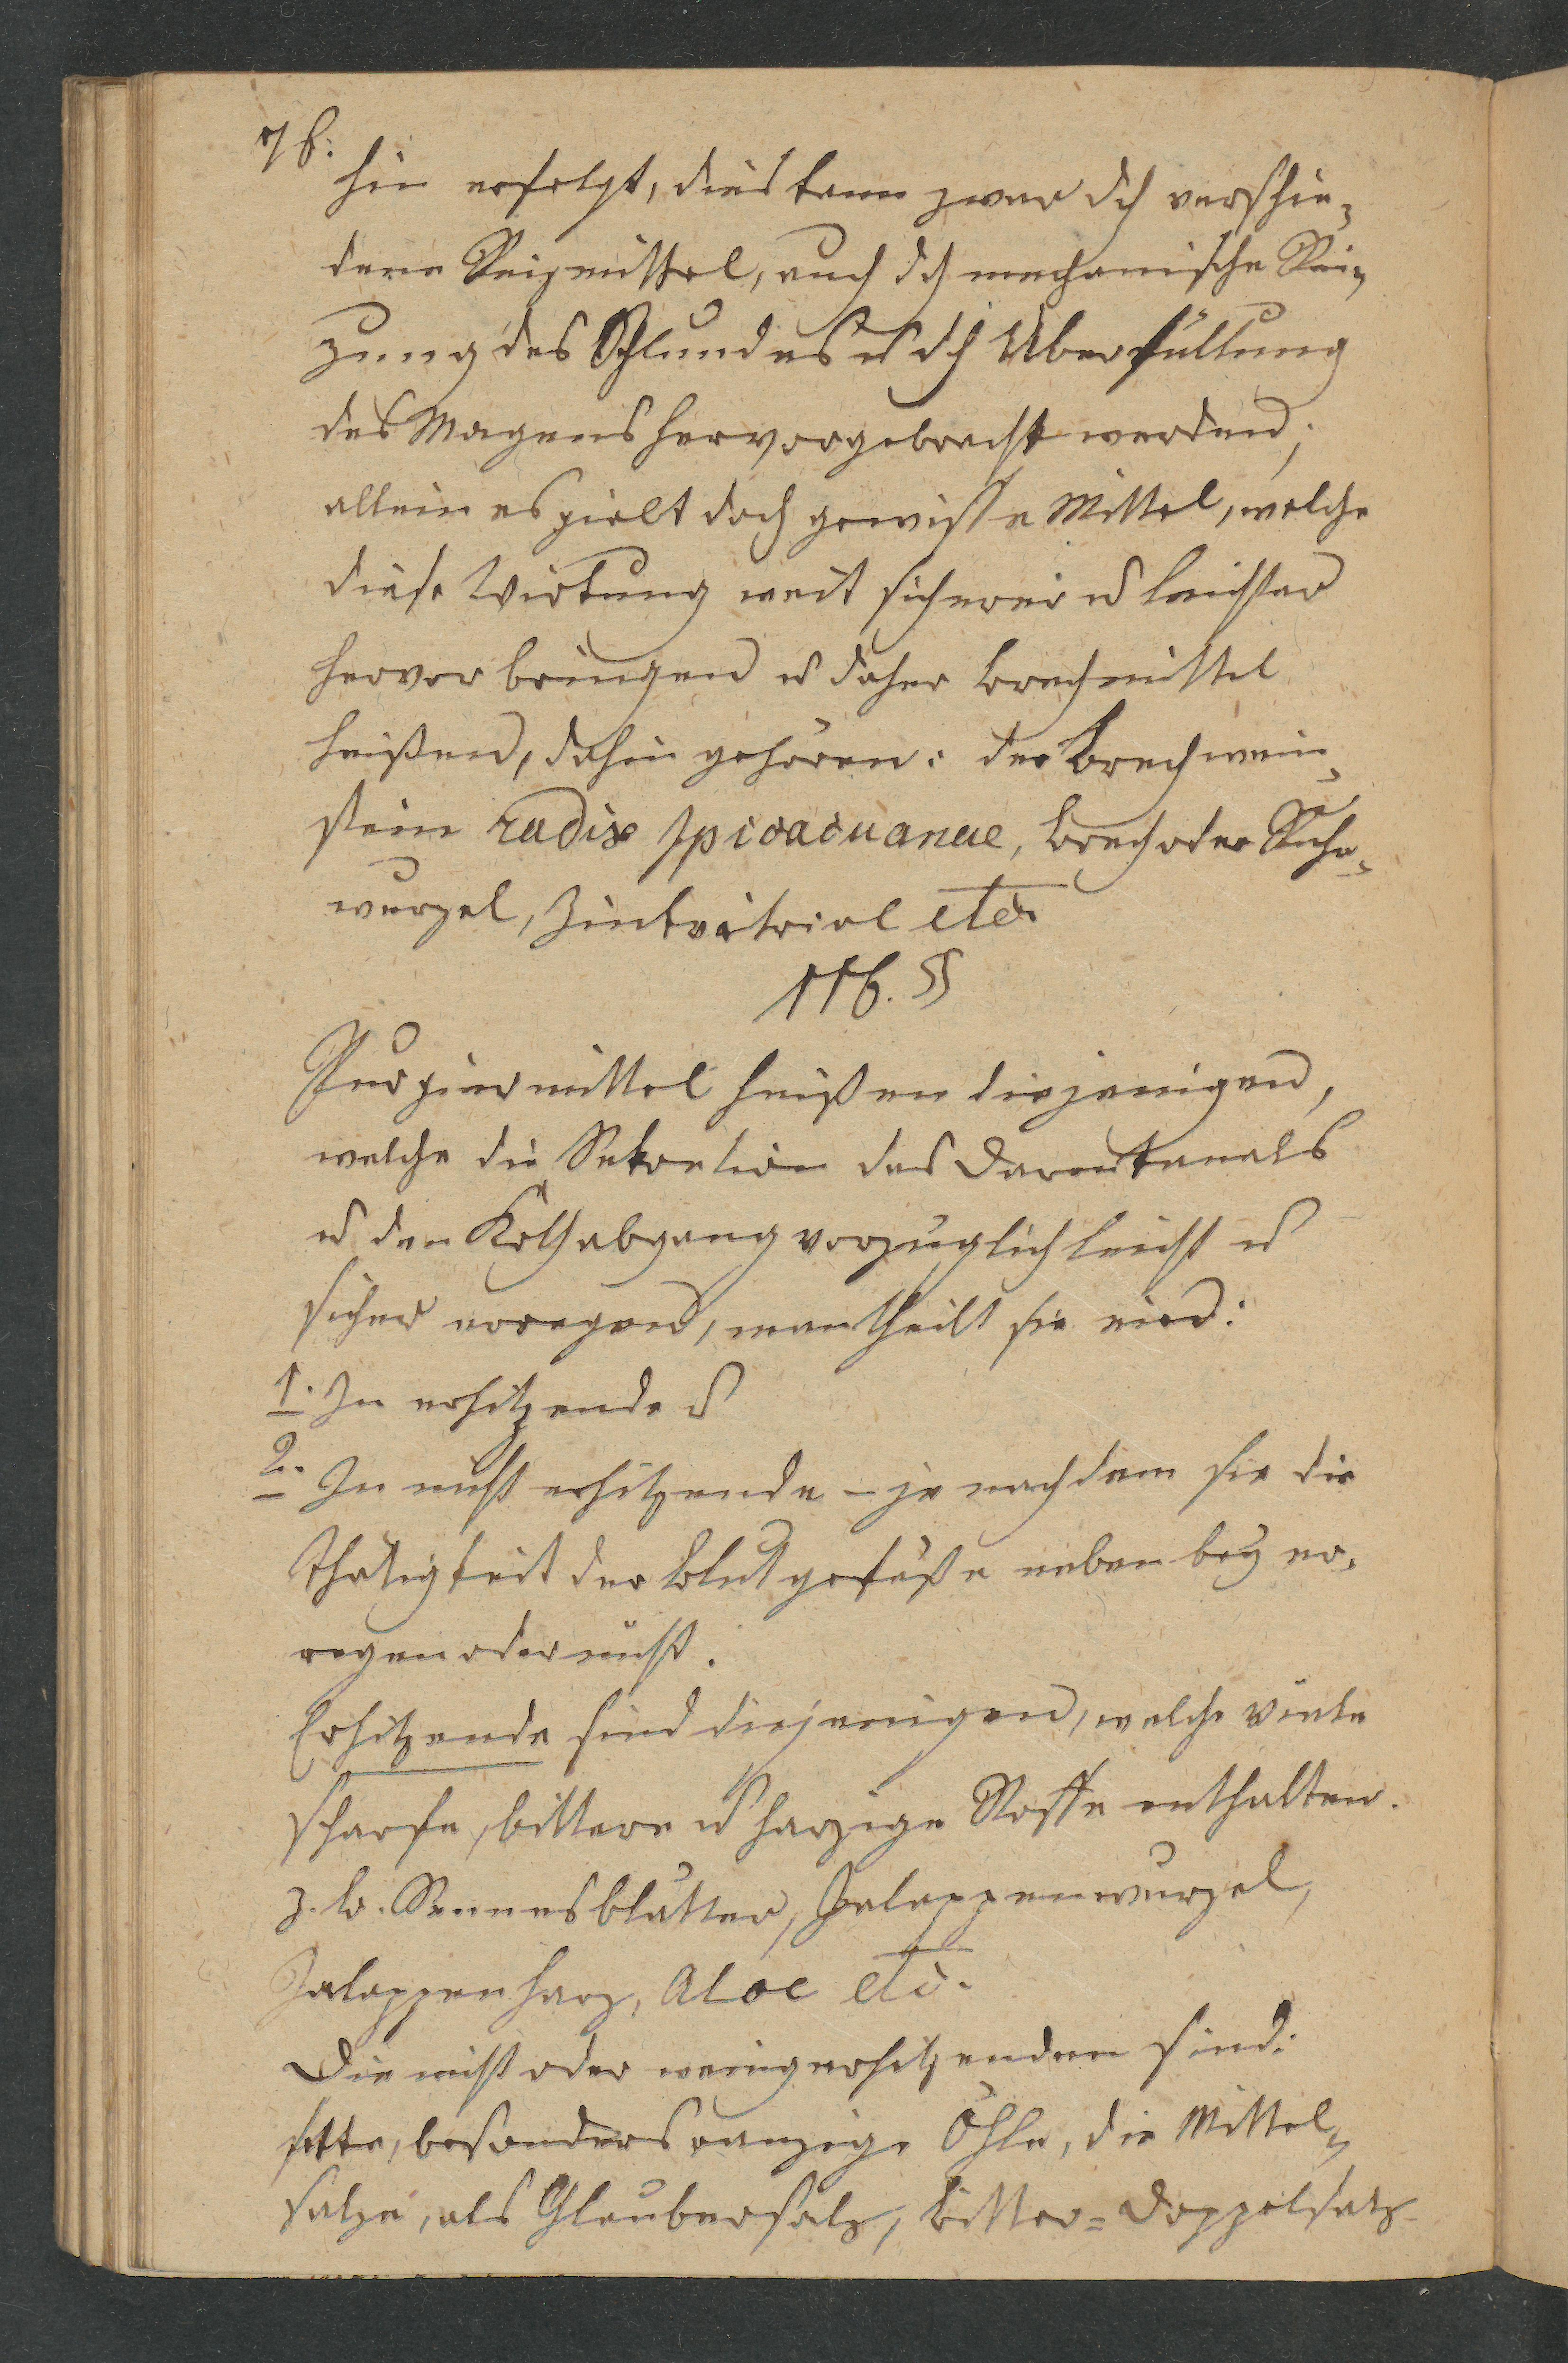 76.
hin erfolgt, dies kann zwar dch verschie-
dene Reizmittel, auch dch mechanische Rei-
zung des Schlundes u dch Überfüllung
des Magens hervorgebracht werden;
allein es giebt doch gewisse Mittel, welche
diese Wirkung weit sicherer u leichter
hervor bringen u daher Brechmittel
heißen, dahin gehören: der Brechwein-
stein radix Ipicacuanae, Brech oder Ruhr-
wurzel, Zinkvitriol etc.
116. §
Purgiermittel heißen diejenigen,
welche die Sekretion des Darmkanals
u den Kothabgang vorzüglich leicht u
sicher erregen, man theilt sie ein:
1. In erhitzende u
2. In nicht erhitzende – je nachdem sie die
Thätigkeit der Blutgefäße neben bey er-
regen oder nicht.
Erhitzende sind diejenigen, welche viele
scharfe, bittere u harzige Stoffe enthalten.
z. B. Sennesblätter, Jalappenwurzel,
Jalappenharz, Aloe etc.
Die nicht oder wenig erhitzenden sind:
fette, besonders ranzige Öhle, die Mittel-
salze, als Glaubersalz, Bitter= Doppelsalz